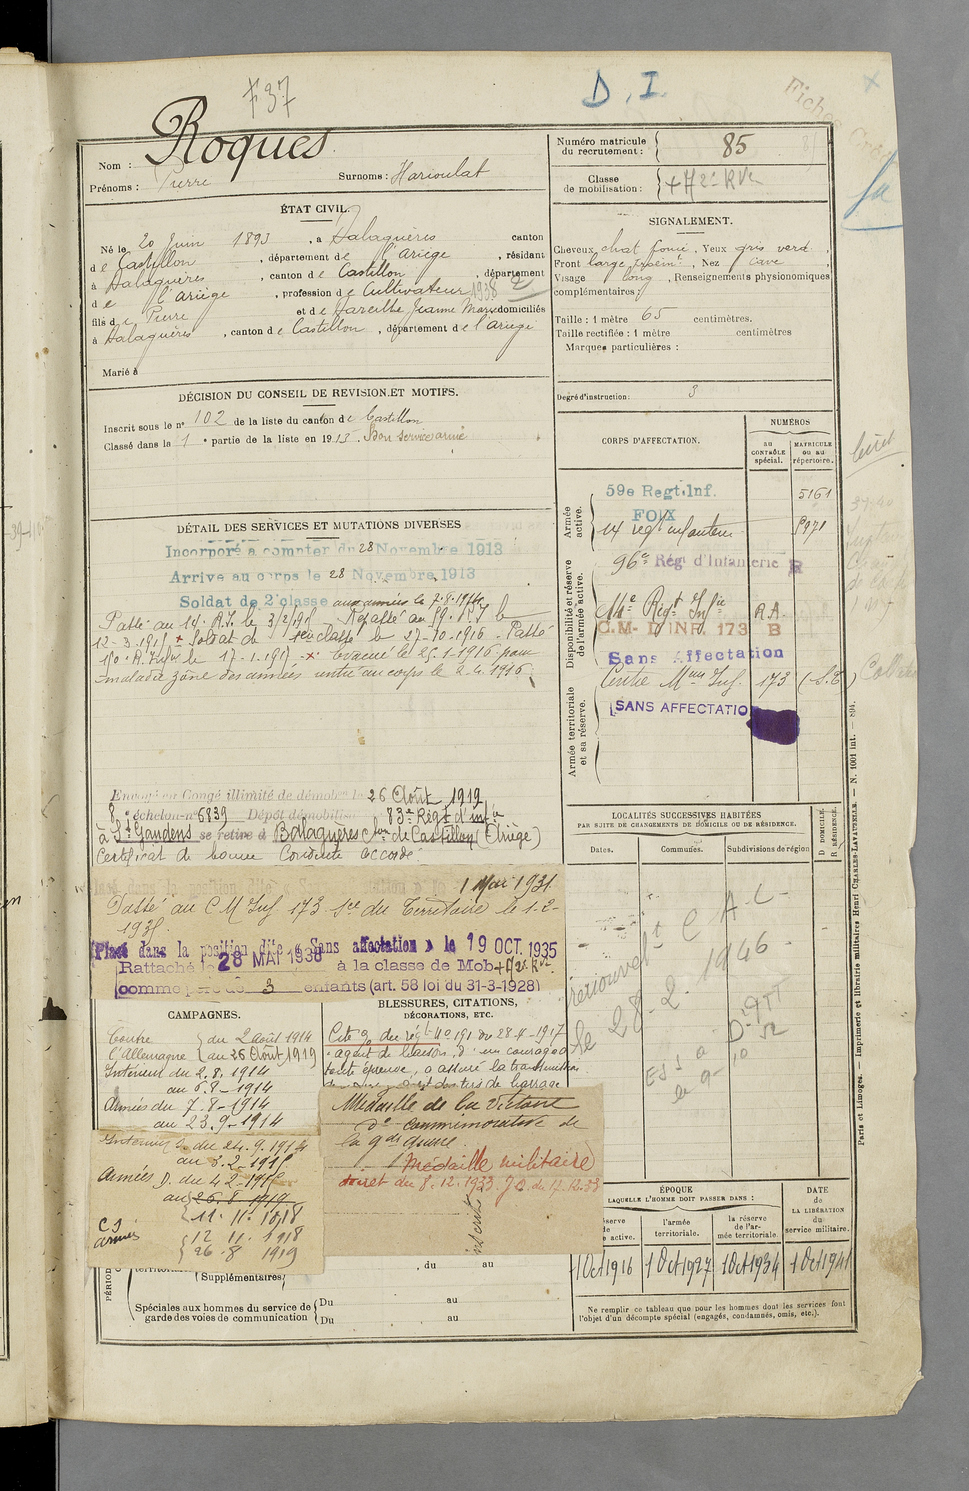 F37
D. I.
Roques
Nom :
Prénoms : Pierre Surnoms : Harioulat
Numéro matricule du recrutement : 85
Classe de mobilisation :
ÉTAT CIVIL.
Né le 20 Juin 1893, à Balaguères canton
de Castillon, département de l'Ariège, résidant
à Balaguères, canton de Castillon, département
de l'Ariège, profession de Cultivateur 1938
fils de Pierre et de Jeanne Marie domiciliés
à Balaguères, canton de Castillon, département de l'Ariège
Marié à
SIGNALEMENT.
Cheveux chat foncé. Yeux gris verd
Front large, Nez cave
Visage long, Renseignements physionomiques
complémentaires :
Taille : 1 mètre 65 centimètres.
Taille rectifiée : 1 mètre centimètres
Marques particulières :
Degré d'instruction : 3
DÉCISION DU CONSEIL DE REVISION ET MOTIFS.
Inscrit sous le n° 102 de la liste du canton de Castillon
Classé dans la 1 e partie de la liste en 1913. Bon service armé
CORPS D'AFFECTATION.
NUMÉROS
au CONTRÔLE spécial.
MATRICULE ou au répertoire.
Armée active.
59e Regt. Inf. 5161
FOIX
14 régt infanterie 8971
Disponibilité et réserve de l'armée active.
96e Rég d'Infanterie R
C.M. D'INF. 173 B
Sans Affectation
Centre Mon Inf. 173
Armée territoriale et sa réserve.
SANS AFFECTATIO
DÉTAIL DES SERVICES ET MUTATIONS DIVERSES
Incorporé à compter du 28 Novembre 1913
Arrivé au corps le 28 Novembre 1913
Soldat de 2e classe aux armées le 7.8.1914
Passé au 14e R.I. le 3/2/15 Repassé au 59e R.I. le
12-3-1915 + Soldat de 1ere classe le 27-10-1916. Passé
au R. Infie le 17-1-1917 x Evacué le 25-1-1916 pour
maladie zône des armées rentré au corps le 2.4.1916
Envoyé en Congé illimité de démob. le 26 Août 1919
8e échelon n° 6839 Dépôt démobilis. 83e Régt d'infie
à St Gaudens se retire à Balaguères Con de Castillon (Ariège)
Certificat de bonne Conduite accordé.
1 Mai 1931
Passé au C M Inf 173 Son du Territoire le 1-2-
Placé dans la position dite « Sans affectation » le 19 OCT. 1935
Rattaché le 28 MAI 1938 à la classe de Mob
comme père de 3 enfants (art. 58 loi du 31-3-1928)
LOCALITÉS SUCCESSIVES HABITÉES
PAR SUITE DE CHANGEMENTS DE DOMICILE OU DE RÉSIDENCE.
Dates. Communes. Subdivisions de région
D. DOMICILE. R. RÉSIDENCE.
le 28.2.1946
CAMPAGNES.
Contre l'Allemagne { du 2 août 1914
au 26 Août 1919
Intérieur du 2.8.1914
au 6.8-1914
Armées du 7-8-1914
au 23.9-1914
Intérieur D. du 24.9.1914
au 3.2-1915
Armées D. du 4-2-1915
au 26.8-1919
11.11.1918
armées
12 11.1918
26.8 1919
BLESSURES, CITATIONS,
DÉCORATIONS, ETC.
agent de liaison, d'un courage à
toute épreuve, a assuré la transmission
Médaille de la Victoire
Dlle commémorative de
la gde guerre
Médaille militaire
décret du 8.12.1933 J.O. du 17.12.33
inscrit
ÉPOQUE
À LAQUELLE L'HOMME DOIT PASSER DANS :
l'armée territoriale.
la réserve de l'armée territoriale.
DATE de LA LIBÉRATION du service militaire.
1 Oct 1916 1 Oct 1927 1 Oct 1934 1 Oct 1941
du au
Supplémentaires
Spéciales aux hommes du service de garde des voies de communication
Du au
Du au
Ne remplir ce tableau que pour les hommes dont les services font
l'objet d'un décompte spécial (engagés, condamnés, omis, etc.).
Paris et Limoges. — Imprimerie et librairie militaires Henri CHARLES-LAVAUZELLE. — N. 1001 int. — 894.